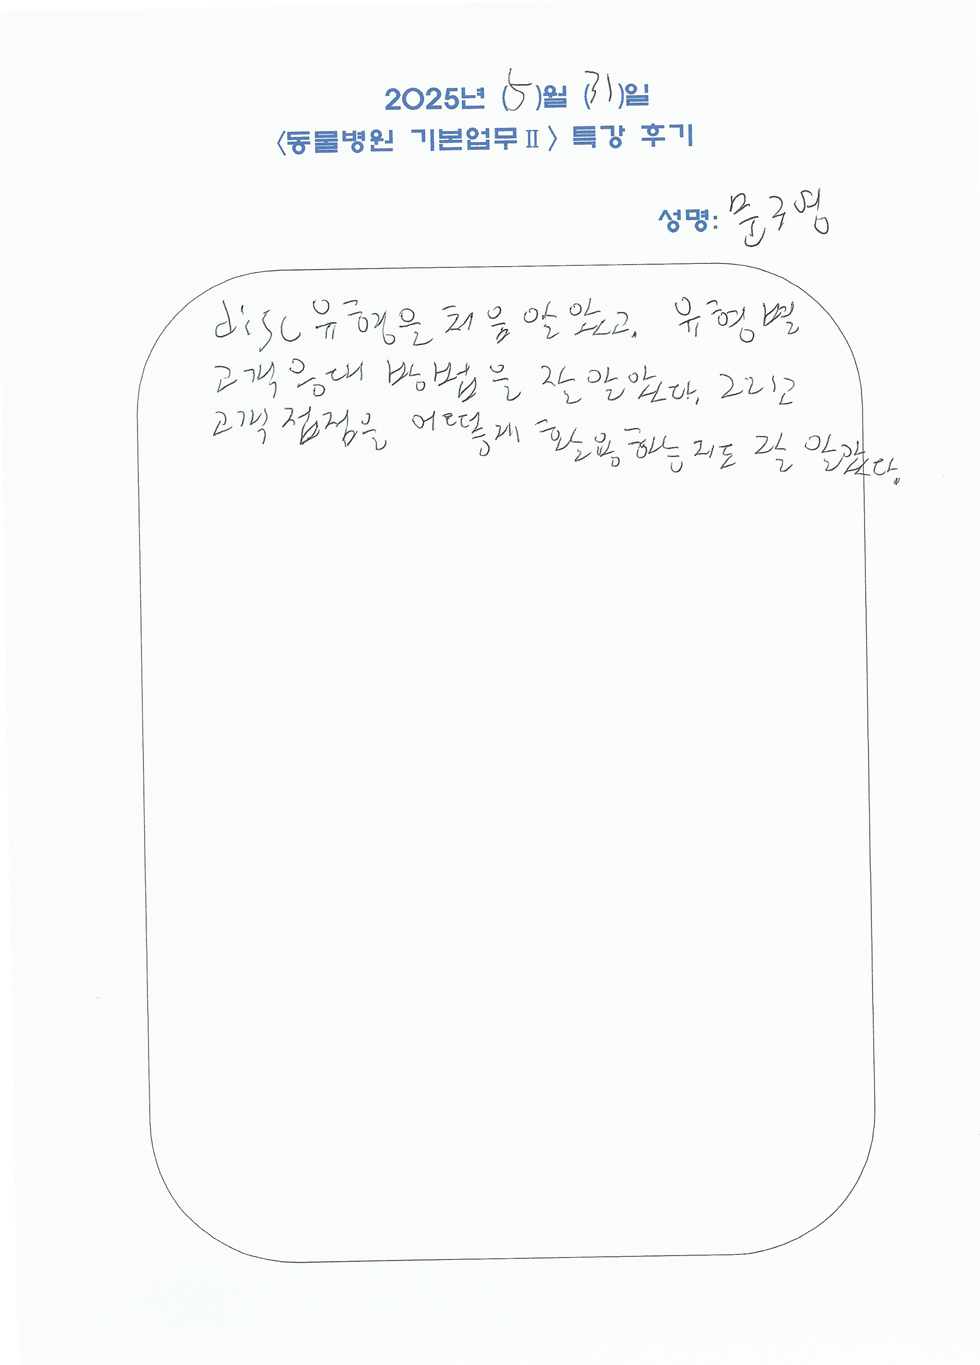 2025년 (5)월 (31)일
<동물병원 기본업무Ⅱ> 특강 후기
성명: 문구영
disc유형을 처음 알았고, 유형별
고객응대 방법을 잘 알았다. 그리고
고객 접점을 어떻게 활용하는지도 잘 알았다.